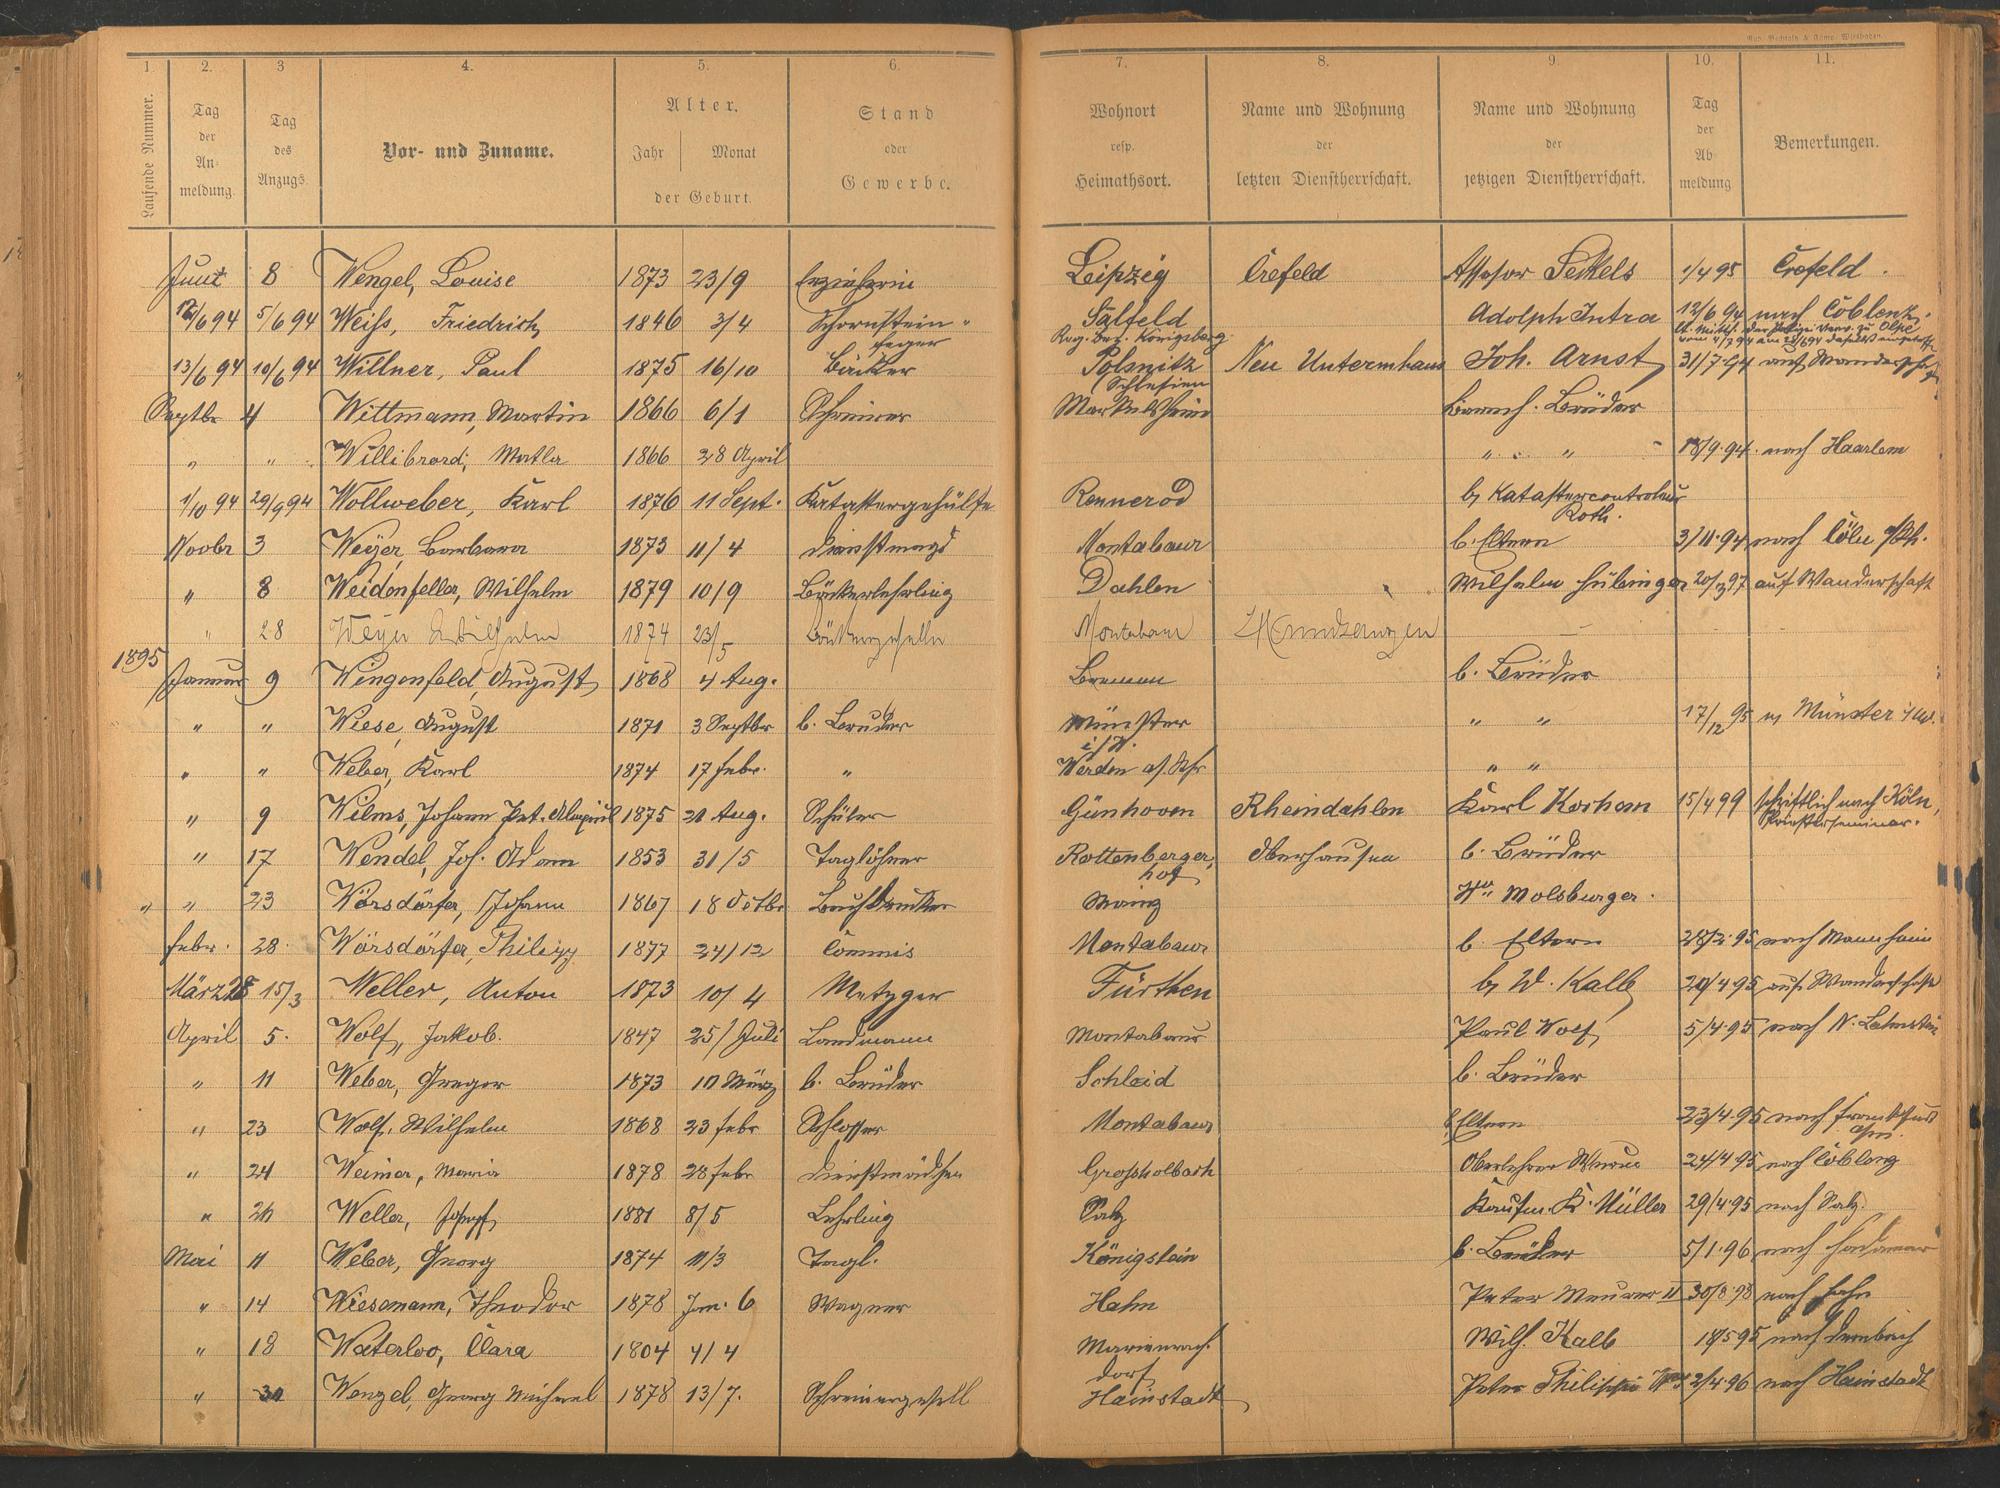 1. 2. 3 4. 5. 6. 7. 8. 9. 10. 11.
Laufende Nummer. Tag der An- meldung. Tag des Anzugs. Vor- und Zuname. Alter. Jahr Monat der Geburt. Stand oder Gewerbe. Wohnort resp. Heimathsort. Name und Wohnung der letzten Dienstherrschaft. Name und Wohnung der jetzigen Dienstherrschaft. Tag der Ab- meldung Bemerkungen.
Juni 8 Wengel, Louise 1873 23/9 Erzieherin Leipzig Crefeld Assesor 1/4 95 Crefeld.
12/6 94 5/6 94 Weiss, Friedrich 1846 3/4 Schornstein- feger Salfeld Reg. Bez. Königsberg Adolph Intra 12/6 94 nach Coblenz.
13/6 94 10/6 94 Willner, Paul 1875 16/10 Bäcker Polsnitz Schlesien Neu Untermhaus Joh. Arnst 31/7 94 auf Wanderschaft
Septbr 4 Wittmann, Martin 1866 6/1 Schreiner Markelsheim Barmh. Brüder
" " Willibrord, 1866 28 April " " 18/9. 94. nach Haarlem
1/10 94 29/9 94 Wollweber, Karl 1876 11 Sept. Katastergehülfe Rennerod b/ Katastercontroleur Roth.
Novbr 3 Weyer, Barbara 1873 11/4 Dienstmagd Montabaur b. Eltern 3/11. 94 nach Cöln a/Rh.
" 8 Weidenfeller, Wilhelm 1879 10/9 Bäckerlehrling Dahlen Wilhelm Hübinger 20/3 97 auf Wanderschaft
" 28 Weyer Wilhelm 1874 23/5 Bäckergeselle Montabaur
1895
Januar 9 Wingenfeld, August 1868 4 Aug. Bremen b. Brüder
" " Wiese, August 1871 3 Septbr b. Bruder Münster i/W. " " 17/12 95 n/ Münster i/W.
" " Weber, Karl 1874 17 Febr. " Werden a/. Rhr " "
" 9 Wilms, Johann Pet. 1875 21 Aug. Schüler Günhoven Rheindahlen Karl Korhom 15/4 99 schriftlich nach Köln, Priesterseminar.
" 17 Wendel, Joh. Adam 1853 31/5 Taglöhner Rottenberger, hof Oberhausen b. Brüder
" " 23 Wörsdörfer, Johann 1867 18 Octbr Buchdrucker Mainz Wwe Molsburger.
Febr. 28. Wörsdörfer, Philipp 1877 24/12 Commis Montabaur b. Eltern 28/2. 95 nach Mannheim
März 28 15/3 Weller, Anton 1873 10/4 Metzger Fürthen b/ W. Kalb 20/4 95 auf Wanderschaft
April 5. Wolf, Jakob. 1847 25/Juli Landmann Montabaur Paul Wolf 5/4. 95 nach N. Lahnstein
" 11 Weber, Gregor 1873 10 März b. Brüder Schleid b. Brüder
" 23 Wolf, Wilhelm 1868 23 Febr Schlosser Montabaur b. Eltern 23/4. 95 nach Frankfurt a/m.
" 24 Weimer, Maria 1878 28 Febr Dienstmädchen Grossholbach Oberlehrer 24/4. 95 nach Coblenz
" 26 Weller, Joseph 1881 8/5 Lehrling Salz Kaufm. K. Müller 29/4. 95 nach Salz.
Mai 11 Weber, Georg 1874 11/3 Tagl. Königstein b. Brüder 5/1. 96 nach Hadamar
" 14 Wiesemann, Theodor 1878 Jan. 6 Wagner Hahn Peter Meurer II 30/8. 98 nach Hahn
" 18 Waterloo, Clara 1804 4/4 Marienrach. dorf Wilh. Kalb 18/5 95 nach Dernbach
" 30 Wenzel, Georg Michael 1878 13/7. Schreinergesell Hainstadt Peter Philippi 2/4. 96 nach Hainstadt